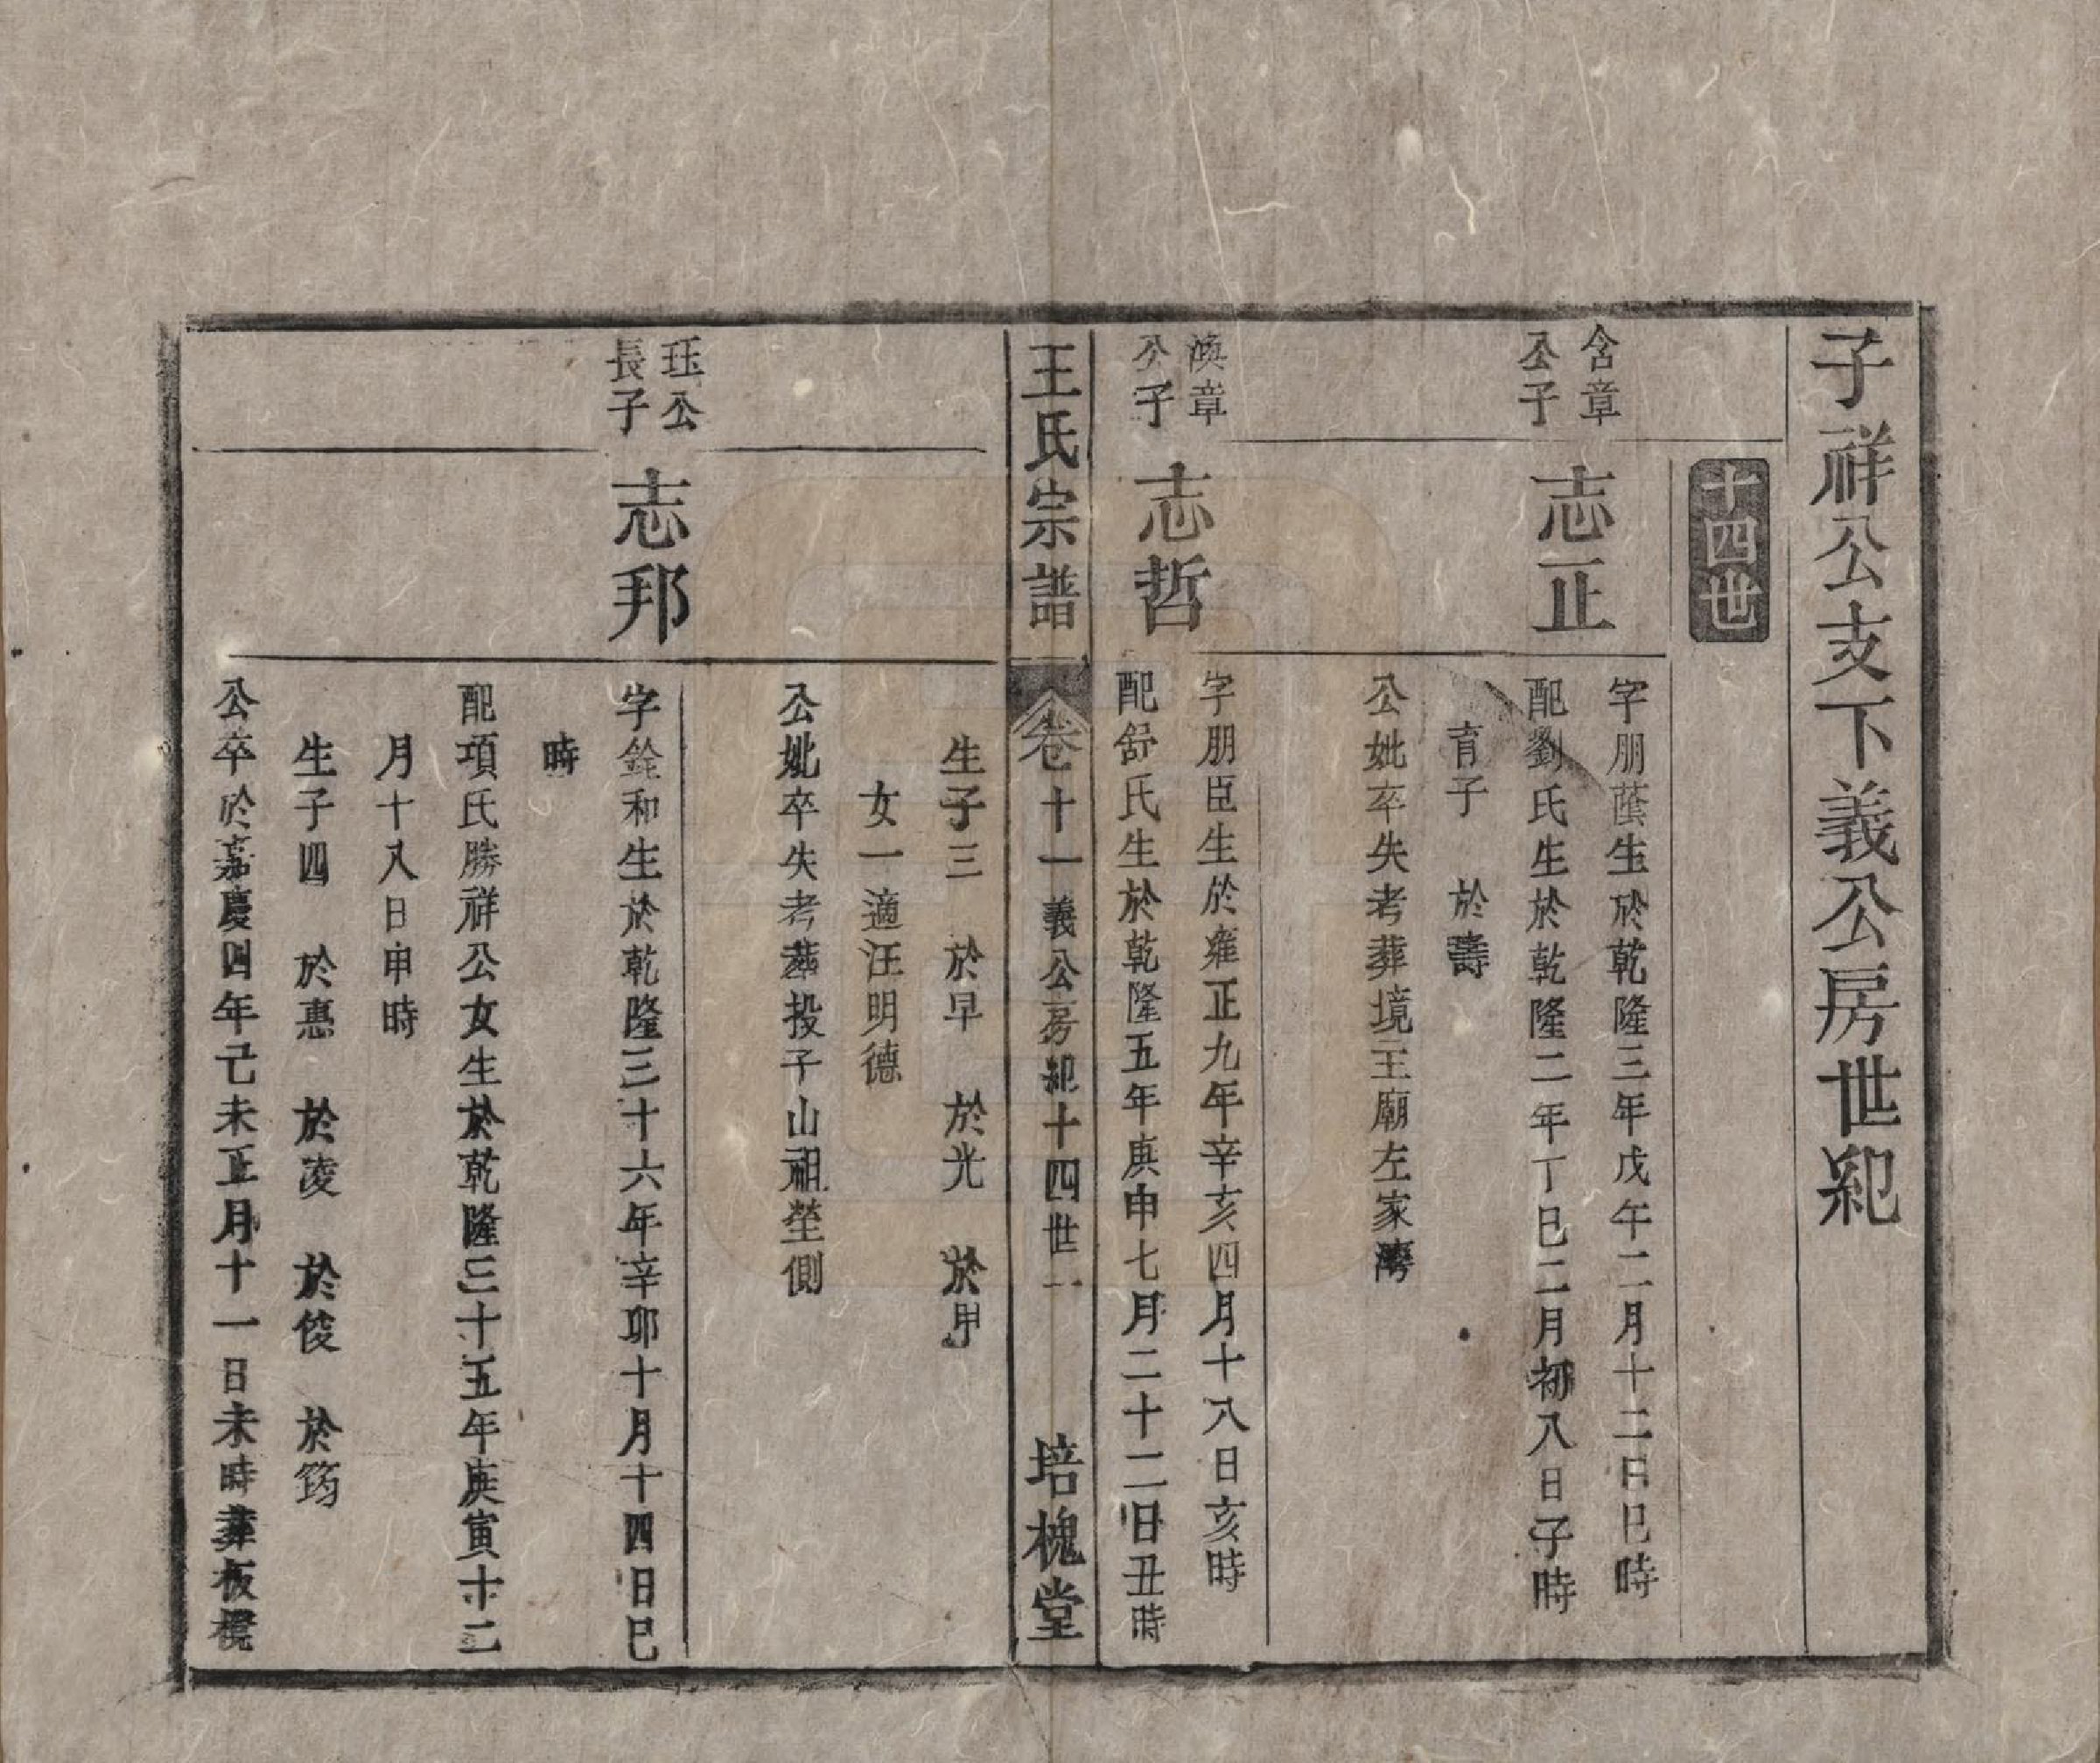 子祥公支下義公房世紀
十四世
含章
公子
志正
字朋蔭生於乾隆三年戊午二月十二日巳時
配劉氏生於乾隆二年丁巳二月初八日子時
育子　於壽
公妣卒失考葬境王廟左家灣
渙章
公子
志哲
字朋臣生於雍正九年辛亥四月十八日亥時
配舒氏生於乾隆五年庚申七月二十二日丑時
王氏宗譜
卷十一義公房紀十四世一
培槐堂
生子三　於早　於光　於甲
女一適汪明德
公妣卒失考葬投子山祖塋側
珏公
長子
志邦
字銓和生於乾隆三十六年辛卯十月十四日巳
時
配項氏勝祥公女生於乾隆三十五年庚寅十二
月十八日申時
生子四　於惠　於凌　於俊　於筠
公卒於嘉慶四年己未正月十一日未時葬板櫈